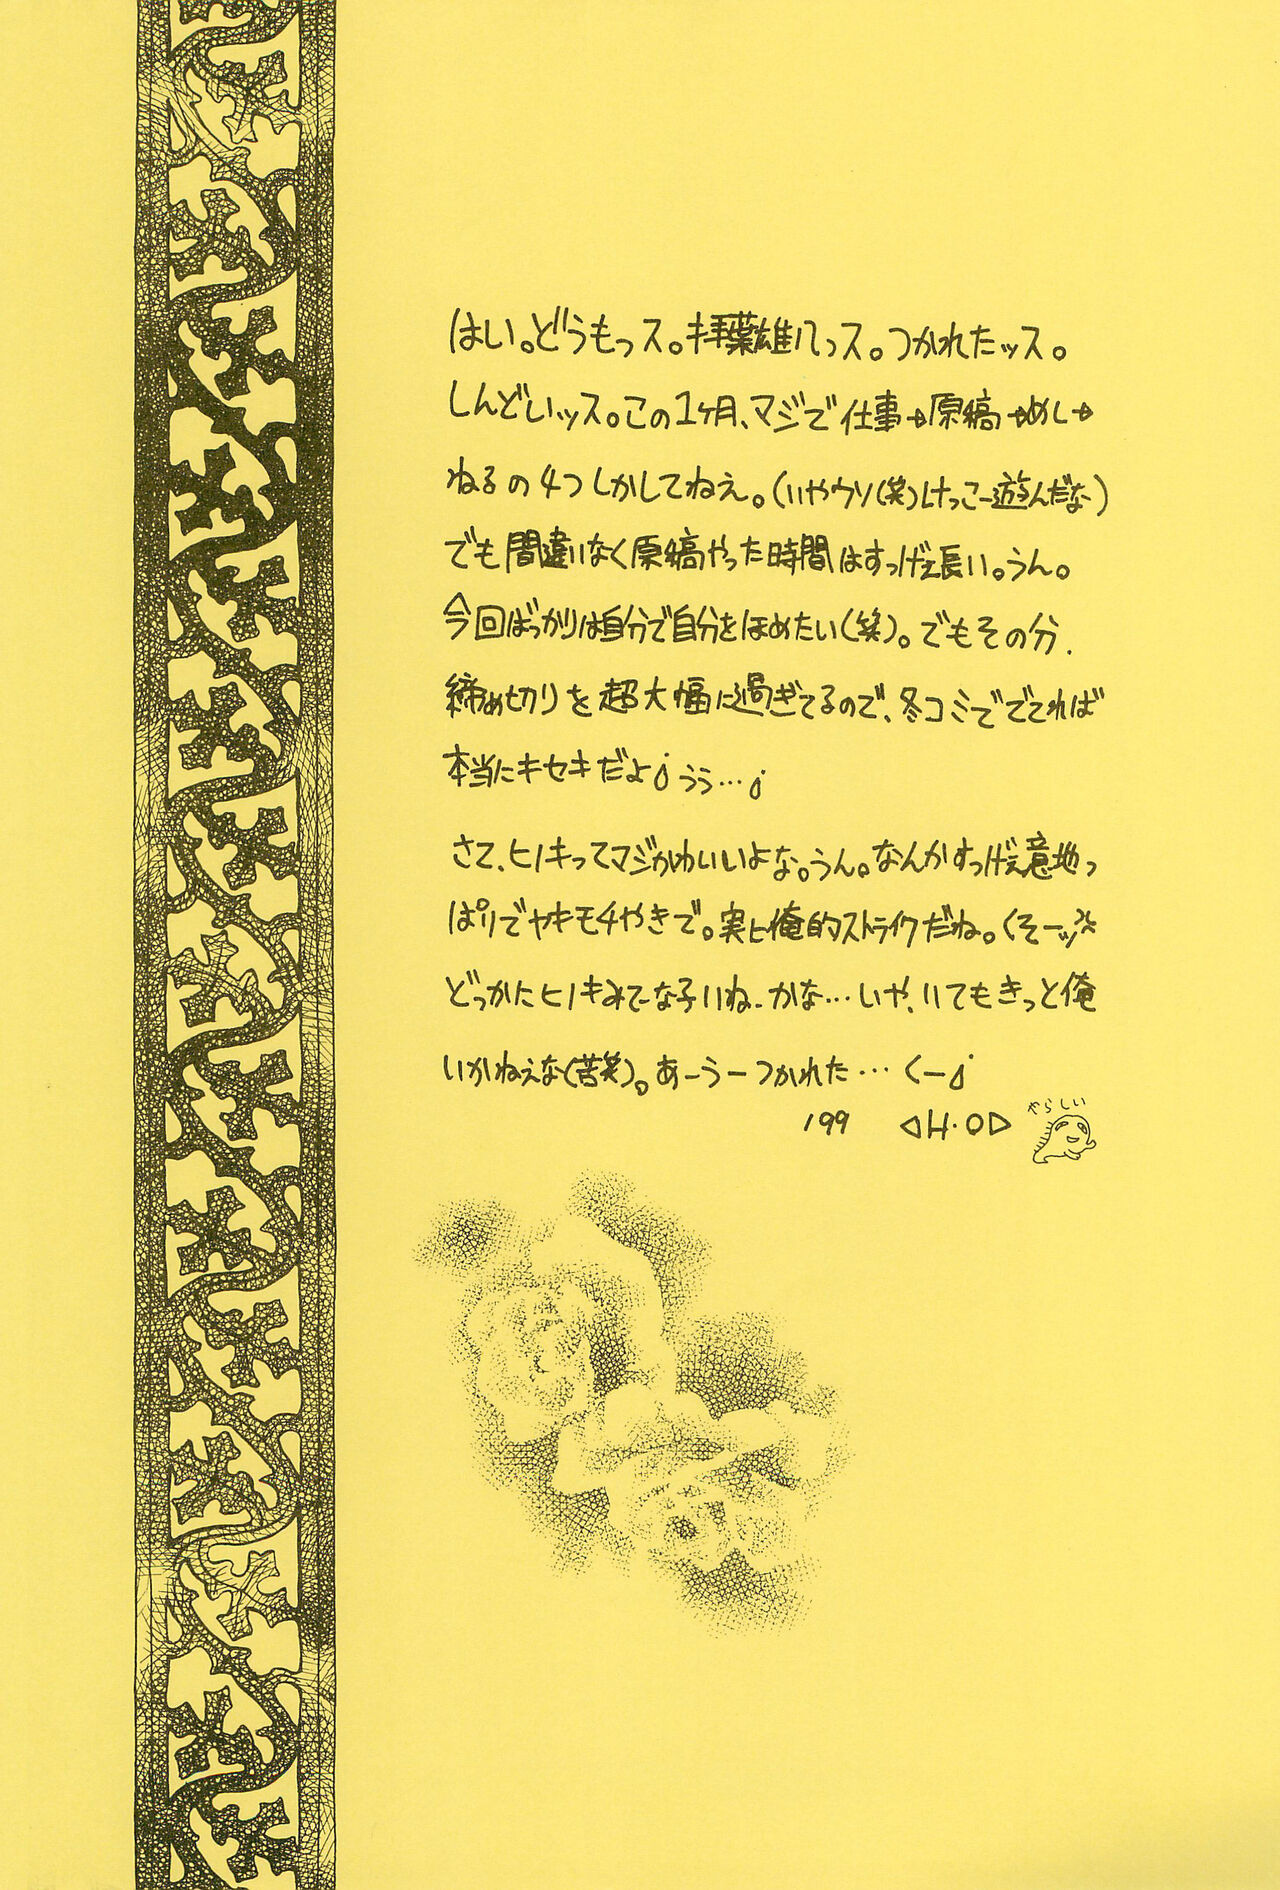 はい。どうもっス。拝葉雄八っス。つかれたッス。
しんどいッス。この1ヶ月、マジで仕事→原稿→めし→
ねるの4つしかしてねえ。(いやウソ(笑)けっこー遊んだな)
でも間違いなく原稿やった時間はすっげえ長い。うん。
今回ばっかりは自分で自分をほめたい(笑)。でもその分、
締め切りを超大幅に過ぎてるので、冬コミででてれば
本当にキセキだよ うぅ…
さて、ヒノキってマジかわいいよな。うん。なんかすっげえ意地っ
ぱりでヤキモチやきで。実に俺的ストライクだね。くそーッ
どっかにヒノキみてーな子いねーかな…いや、いてもきっと俺
いかねえな(苦笑)。あーうーつかれた…くー
'99 ◁H・O▷ やらしい